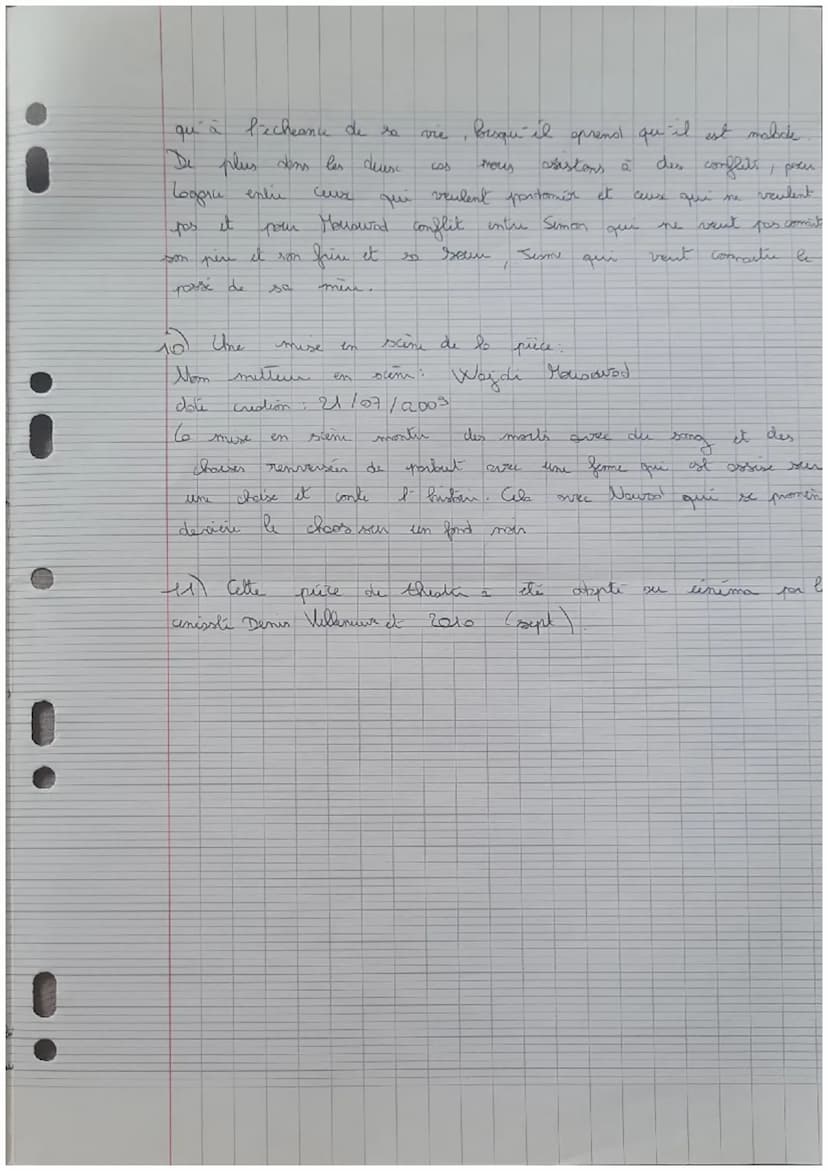 qu'à l'écheance de sa vie, lorsqu'il aprend qu'il est malade.
De plus dans les deux cas nous assistons à des conflits, pour
Lagarce entre ceux qui veulent pardonner et ceux qui ne veulent
pas et pour Mouawad conflit entre Simon qui ne veut pas connait
son père et son frère et sa soeur, Jeanne qui veut connaitre le
passé de sa mère.
10) Une mise en scène de la pièce:
Nom metteur en scène: Wajdi Mouawad
date création: 21/07/2009
La mise en scène montre des morts avec du sang et des
chaises renversées de partout avec une femme qui est assise sur
une chaise et conte l'histoire. Cela avec Nawal qui se promèn
derrière le chaos sur un fond noir
11) Cette pièce de theatre à été adapté au cinéma par l
Denis Villeneuve et 2010 (sept).